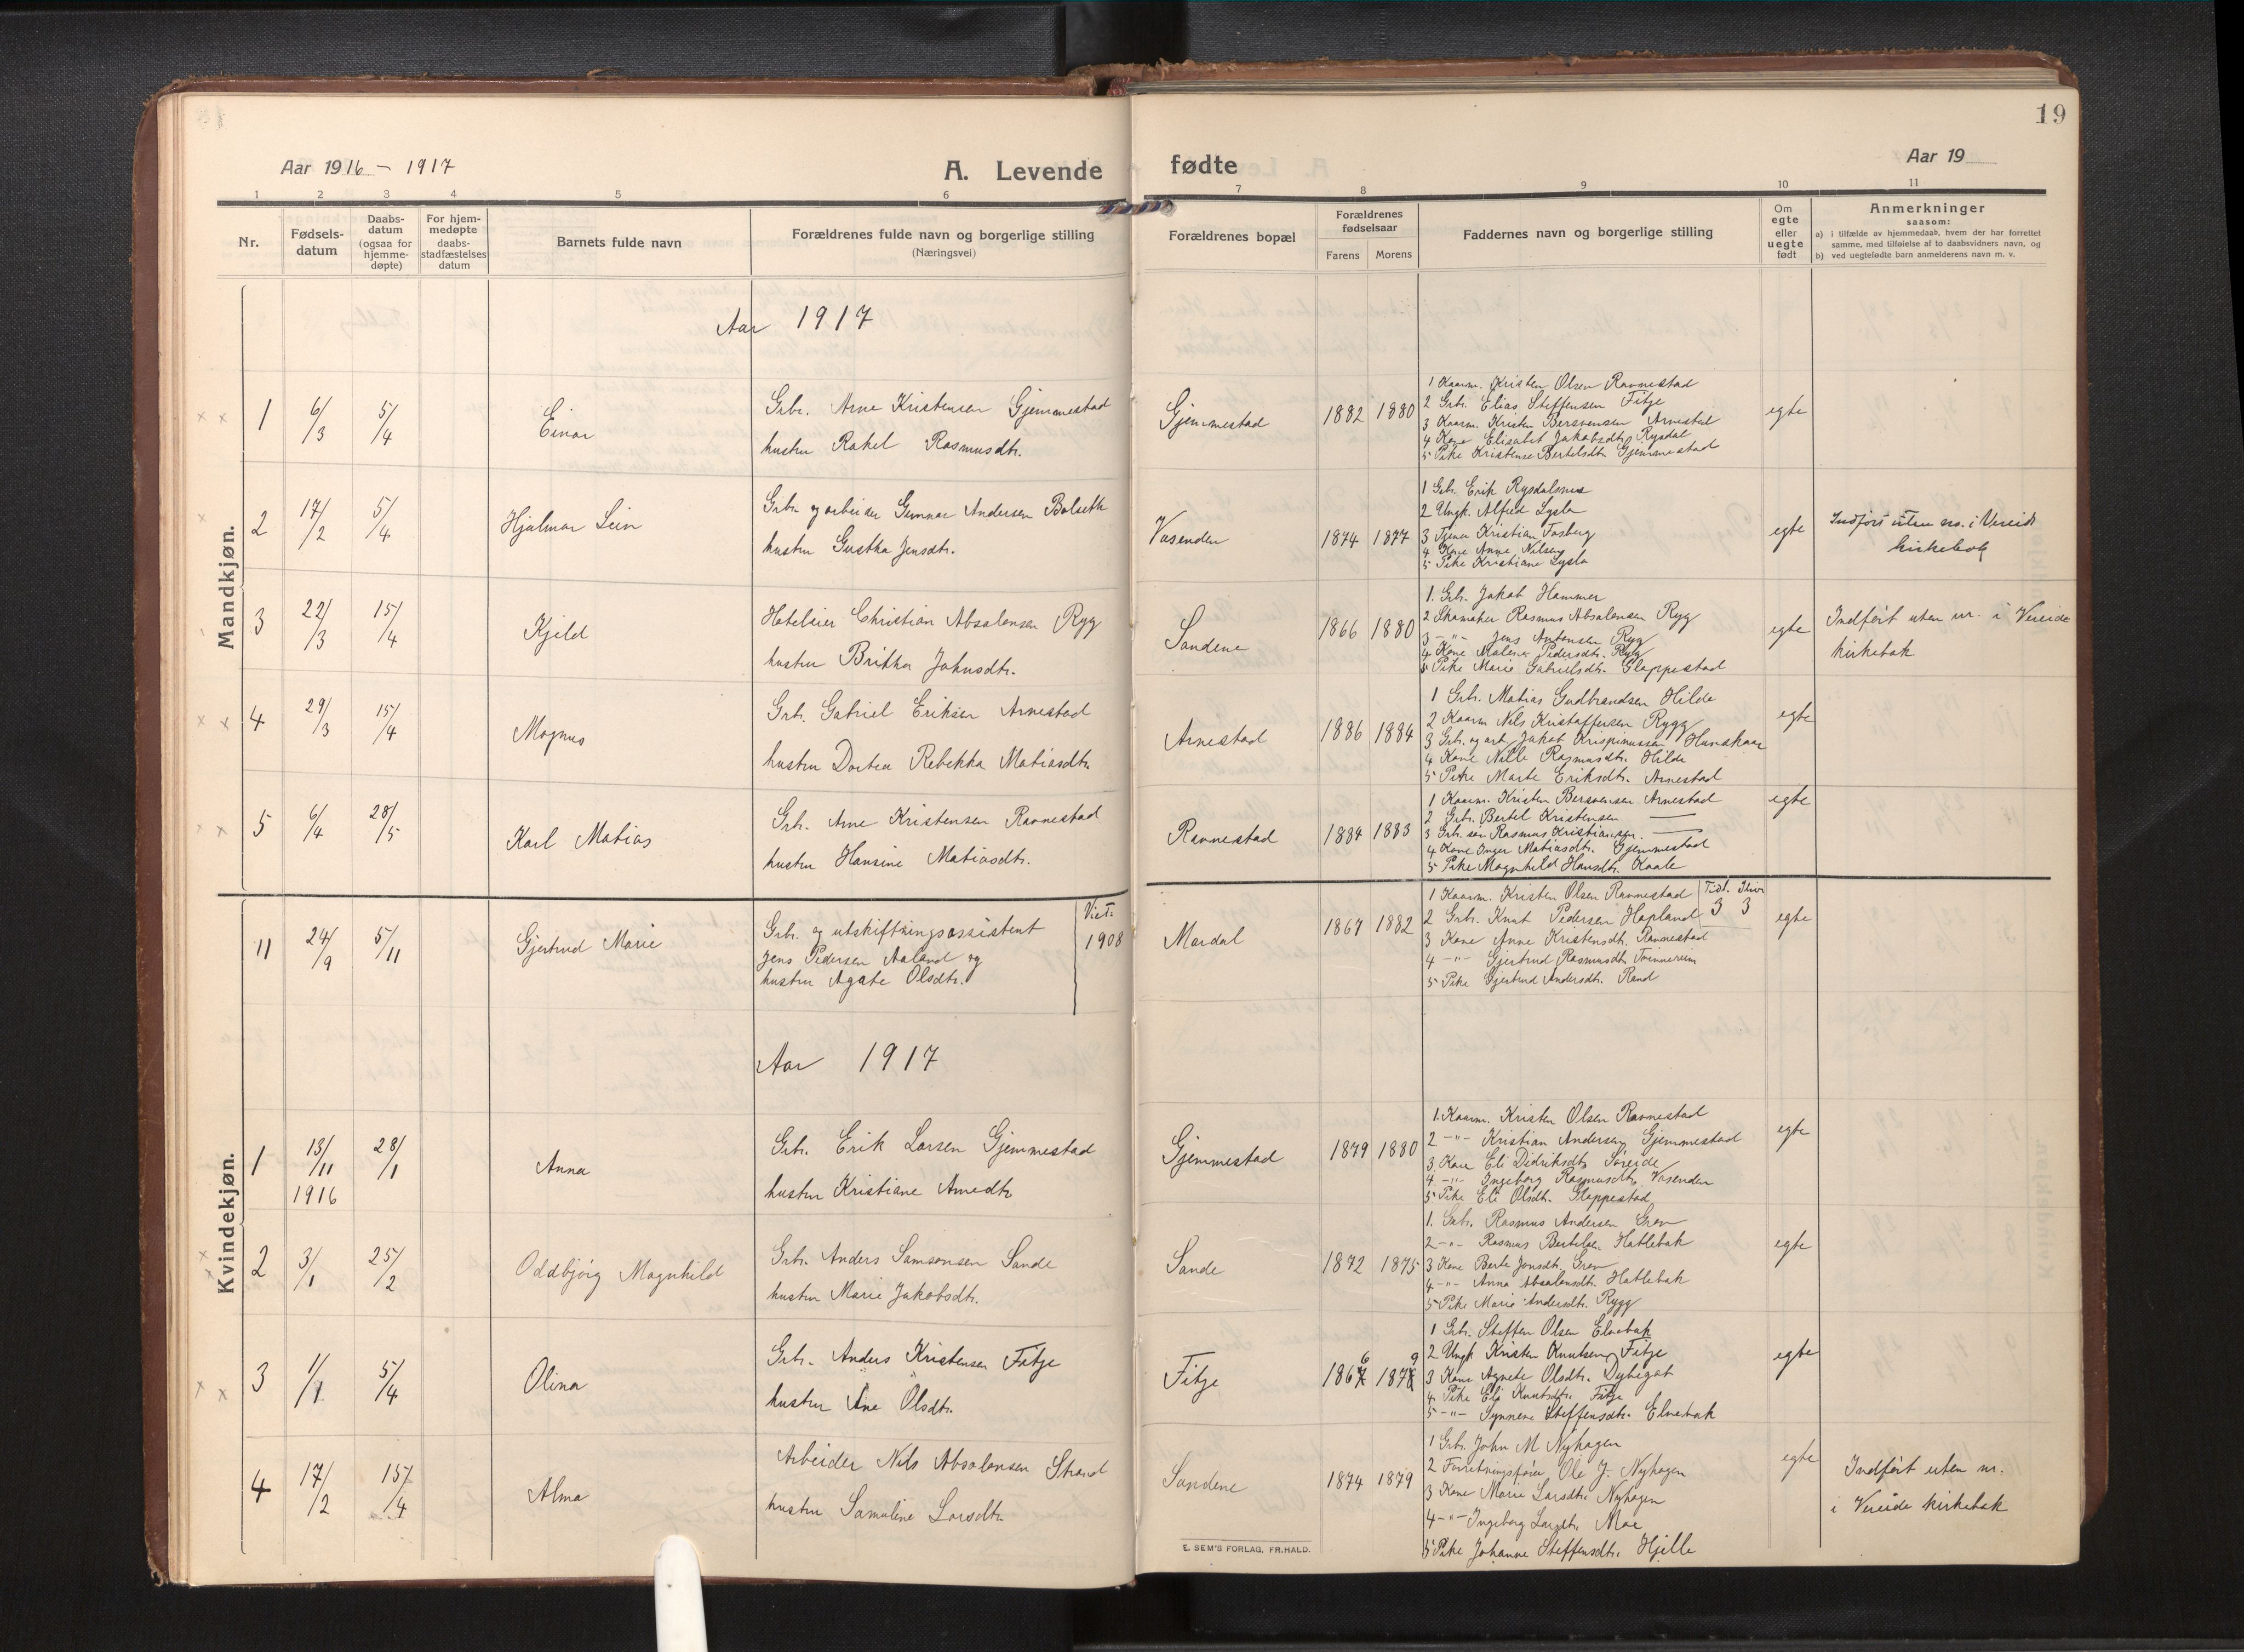 19
Aar 1916 - 1917
A. Levende fødte
Aar 19
1 2 3 4 5 6 7 8 9 10 11
Nr.
Fødsels-
datum
Daabs-
datum
(ogsaa for
hjemme-
døpte)
For hjem-
medøpte
daabs-
stadfæstelses
datum
Barnets fulde navn
Forældrenes fulde navn og borgerlige stilling
(Næringsvei)
Forældrenes bopæl
Forældrenes
fødselsaar
Farens Morens
Faddernes navn og borgerlige stilling
Om
egte
eller
uegte
født
Anmerkninger
saasom:
a) i tilfælde av hjemmedaab, hvem der har forrettet
samme, med tilføielse af to daabsvidners navn, og
b) ved uegtefødte barn anmelderens navn m. v.
Mandkjøn.
Aar 1917
1 6/3 5/4 Einar
Grbr. Arne Kristensen Gjemmestad
hustru Rakel Rasmusdtr.
Gjemmestad 1882 1880
1 Kaarm. Kristen Olsen Ravnestad
2 Grbr. Elias Steffensen Fitje
3 Kaarm. Kristen Bersvensen Arnestad
4 Kone Elisabet Jakobsdtr. Rysdal
5 Pike Kristense Bertelsdtr. Gjemmestad
egte
2 17/2 5/4 Hjalmar Sein
Grbr. og arbeider Gunnar Andersen Bolseth
hustru Gustha Jensdtr.
Vasenden 1874 1877
1 Grbr. Erik Rysdalsnes
2 Ungk. Alfred Lysla
3 Tjener Kristian Fosberg
4 Kone Anne Nilsen
5 Pike Kristiane Lysla
egte
Indført uten no. i Vereide
kirkebok
3 22/3 15/4 Kjeld
Hoteleier Christian Absalonsen Ryg
hustru Britha Johnsdtr.
Sandene 1866 1880
1. Grbr. Jakob Hammer
2 Skomaker Rasmus Absalonsen Ryg
3 -"- Jens Antonsen Ryg
4 Kone Malene Pedersdtr. Ryg
5 Pike Marie Gabrielsdtr. Gloppestad
egte
Indført uten nr. i Vereide
kirkebok
4 29/3 15/4 Magnus
Grbr. Gabriel Eriksen Arnestad
hustru Dortea Rebekka Matiasdtr.
Arnestad 1886 1884
1 Grbr. Matias Gudbrandsen Hilde
2 Kaarm Nils Kristoffersen Rygg
3 Grbr. og arb. Jakob Krispinussen Hunskaar
4 Kone Nille Rasmusdtr. Hilde
5 Pike Marte Eriksdtr. Arnestad
egte
5 6/4 28/5 Karl Matias
Grbr. Arne Kristensen Ravnestad
hustru Hansine Matiasdtr.
Ravnestad 1884 1883
1 Kaarm. Kristen Bersvensen Arnestad
2 Grbr. Bertel Kristensen —
3 Grbr. søn Rasmus Kristiansen. —
4 Kone Inger Matiasdtr. Gjemmestad
5 Pike Magnhild Hansdtr. Kaale
egte
Kvindekjøn.
11 24/9 5/11 Gjertrud Marie
Grbr. og utskiftningsassistent
Jens Pedersen Aaland og
hustru Agate Olsdtr.
Viet.
1908
Mardal 1867 1882
1 Kaarm. Kristen Olsen Ravnestad
2 Grbr. Knut Pedersen Hopland
3 Kone Anne Kristensdtr. Ravnestad
4 -"- Gjertrud Rasmusdtr.
5 Pike Gjertrud Andersdtr. Rand
3 3
egte
Aar 1917
1 13/11 1916 28/1 Anna
Grbr. Erik Larsen Gjemmestad
hustru Kristiane Arnedtr.
Gjemmestad 1879 1880
1. Kaarm. Kristen Olsen Ravnestad
2 -"- Kristian Andersen Gjemmestad
3. Kone Eli Didriksdtr. Søreide
4 -"- Ingeborg Rasmusdtr. Vasenden
5 Pike Eli Olsdtr. Gloppestad
egte
2 3/1 25/2 Oddbjørg Magnhild
Grbr. Anders Samsonsen Sande
hustru Marie Jakobsdtr.
Sande 1872 1875
1. Grbr. Rasmus Andersen Grov
2 -"- Rasmus Bertelsen Hatlebak
3 Kone Berte Jonsdtr. Grov
4 -"- Anna Absalonsdtr. Hatlebak
5 Pike Marie Andersdtr. Rygg
egte
3 1/1 5/4 Olina
Grbr. Anders Kristensen Fitje
hustru Ane Olsdtr.
Fitje 1866 1879
1 Grbr. Steffen Olsen Elvebak
2 Ungk Kristen Knutsen Fitje
3 Kone Agnete Olsdtr. Dybegot
4 Pike Eli Knutsdtr. Fitje
5 -"- Synneve Steffensdtr. Elvebak
egte
4 17/2 15/4 Alma
Arbeider Nils Absalonsen Strand
hustru Samuline Larsdtr.
Sandene 1874 1879
1 Grbr. John M Nyhagen
2 Forretningsfører Ole J. Nyhagen
3 Kone Marie Larsdtr. Nyhagen
4 -"- Ingeborg Larsdtr. Moe
5 Pike Johanne Steffensdtr. Hjelle
egte
Indført uten nr.
i Vereide kirkebok
E. SEM'S FORLAG, FR.HALD.